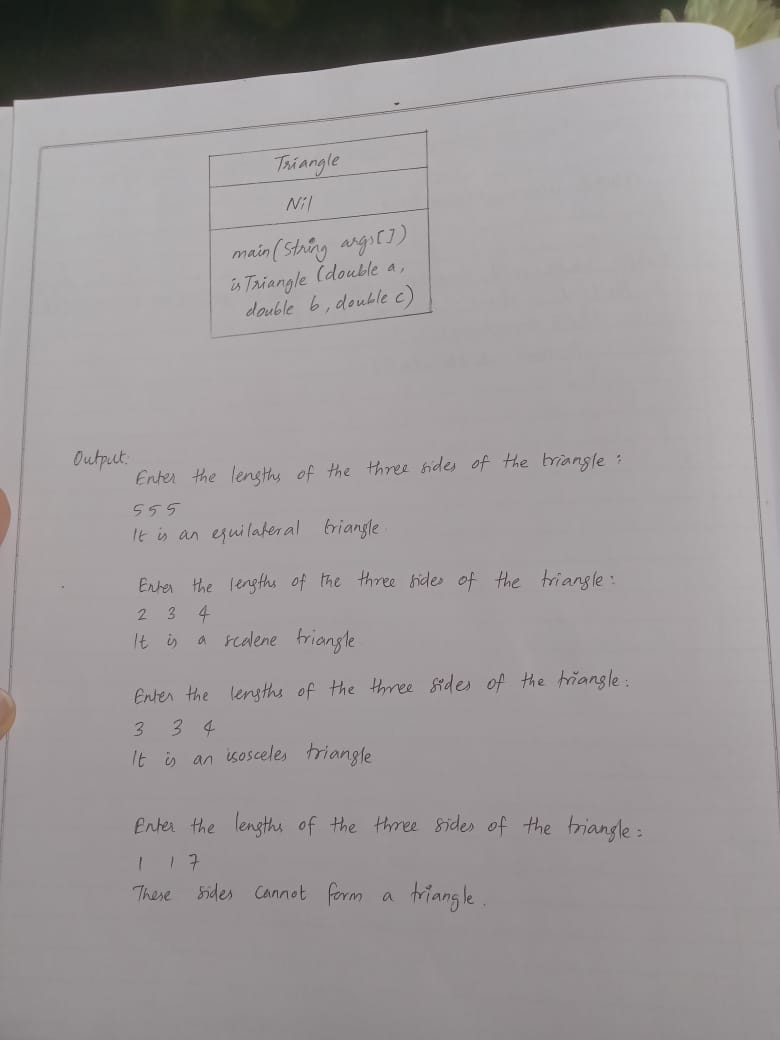 Triangle
Nil
main(String args[])
isTriangle (double a,
double b, double c)
Output:
Enter the lengths of the three sides of the triangle :
5 5 5
It is an equilateral triangle.
Enter the lengths of the three sides of the triangle :
2 3 4
It is a scalene triangle
Enter the lengths of the three sides of the triangle :
3 3 4
It is an isosceles triangle
Enter the lengths of the three sides of the triangle :
1 1 7
These sides cannot form a triangle.